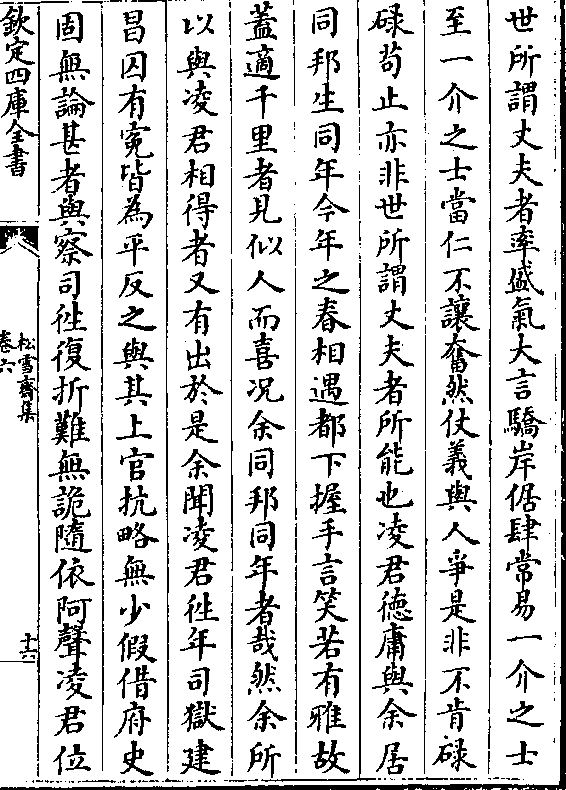 世所謂丈夫者率盛氣大言驕岸倨肆常易一介之士
至一介之士當仁不讓奮然仗義與人爭是非不肯碌
碌苟止亦非世所謂丈夫者所能也凌君德庸與余居
同邦生同年今年之春相遇都下握手言笑若有雅故
蓋適千里者見似人而喜况余同邦同年者哉然余所
以與凌君相得者又有出於是余聞凌君徃年司獄建
昌囚有寃皆為平反之與其上官抗略無少假借府史
固無論甚者與察司徃復折難無詭隨依阿聲凌君位
欽定四庫全書
松雪齋集
卷六
十六